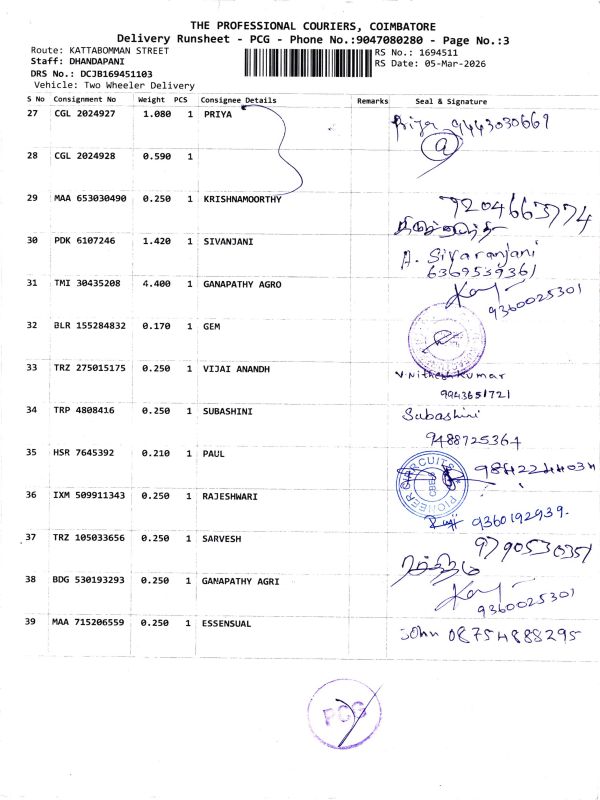 THE PROFESSIONAL COURIERS, COIMBATORE
Delivery Runsheet - PCG - Phone No.:9047080280 - Page No.:3
Route: KATTABOMMAN STREET
RS No.: 1694511
Staff: DHANDAPANI
RS Date: 05-Mar-2026
DRS No.: DCJB169451103
Vehicle: Two Wheeler Delivery
S No Consignment No Weight PCS Consignee Details Remarks Seal & Signature
27 CGL 2024927 1.080 1 PRIYA
Priya 9443030669
28 CGL 2024928 0.590 1
29 MAA 653030490 0.250 1 KRISHNAMOORTHY
7204663774
30 PDK 6107246 1.420 1 SIVANJANI
A. Sivaranjani
6369539361
31 TMI 30435208 4.400 1 GANAPATHY AGRO
9360025301
32 BLR 155284832 0.170 1 GEM
33 TRZ 275015175 0.250 1 VIJAI ANANDH
V.Nithesh Kumar
9943651721
34 TRP 4808416 0.250 1 SUBASHINI
Subashini
9488725364
35 HSR 7645392 0.210 1 PAUL
PIONEER CIRCUITS
CBE
9842244034
36 IXM 509911343 0.250 1 RAJESHWARI
9360192939.
37 TRZ 105033656 0.250 1 SARVESH
9790530351
38 BDG 530193293 0.250 1 GANAPATHY AGRI
9360025301
39 MAA 715206559 0.250 1 ESSENSUAL
John 08754888295
PCG